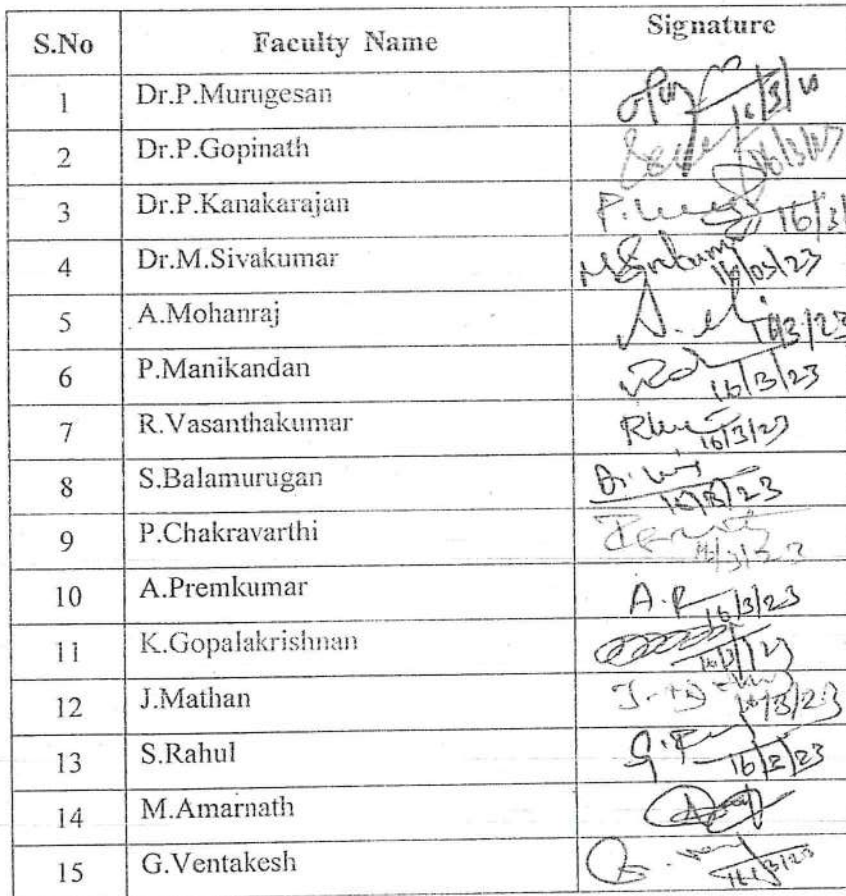 S.No Faculty Name Signature
1 Dr.P.Murugesan 16/3/
2 Dr.P.Gopinath 16/3/
3 Dr.P.Kanakarajan P. 16/3/
4 Dr.M.Sivakumar 16/03/23
5 A.Mohanraj A. 16/3/23
6 P.Manikandan 16/3/23
7 R.Vasanthakumar 16/3/23
8 S.Balamurugan 16/3/23
9 P.Chakravarthi 16/3/23
10 A.Premkumar A.P 16/3/23
11 K.Gopalakrishnan 16/3/23
12 J.Mathan 16/3/23
13 S.Rahul 16/3/23
14 M.Amarnath
15 G.Ventakesh 16/3/23